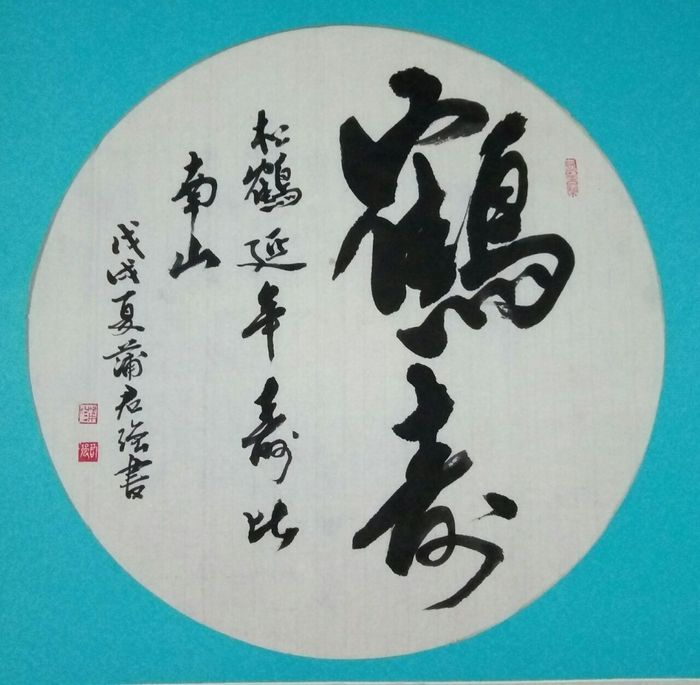 鶴寿
松鶴延年寿比
南山
戊戌夏蒲君强書